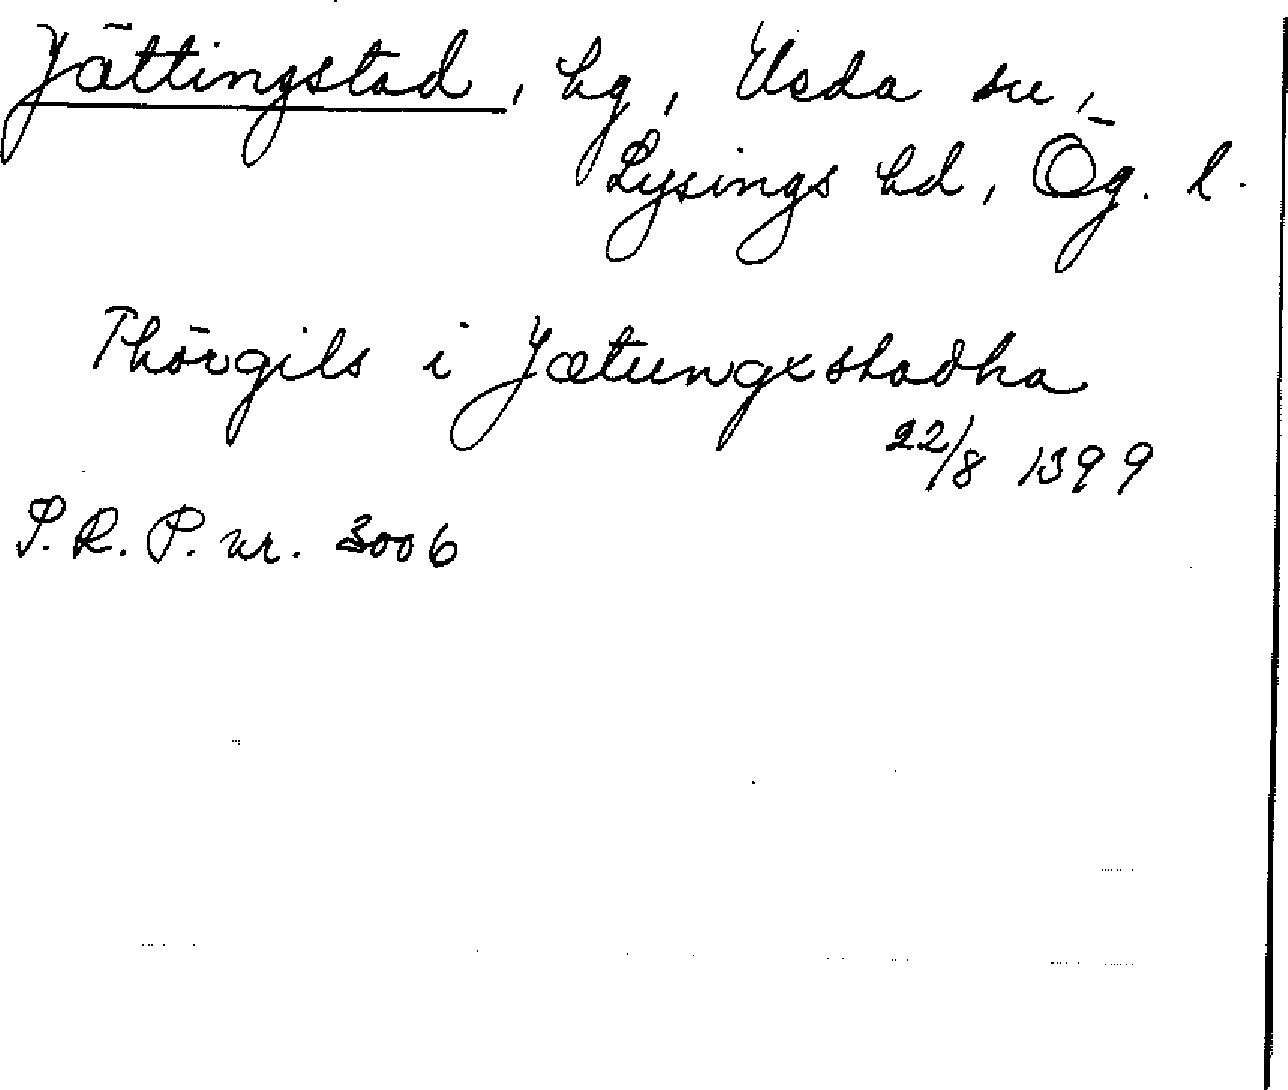 Jättingstad, by, Väsda sn,
Lysings hd, Ög. l.
Thörgils i Jætungxstadha
22/8 1399
P.R.P. nr. 3006